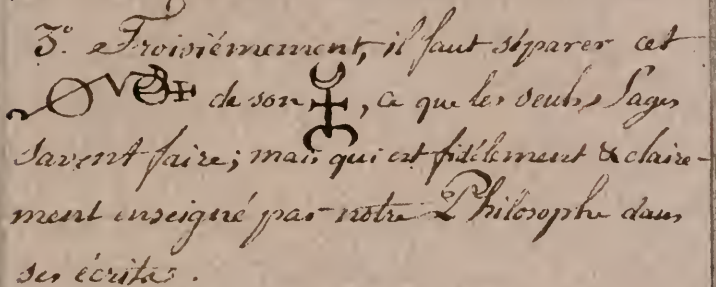 3.º Troisiémement, il faut séparer cet
de son , ce que les seuls Sages
savent faire; mais qui est fidélement & claire-
ment enseigné par notre Philosophe dans
ses écrits.